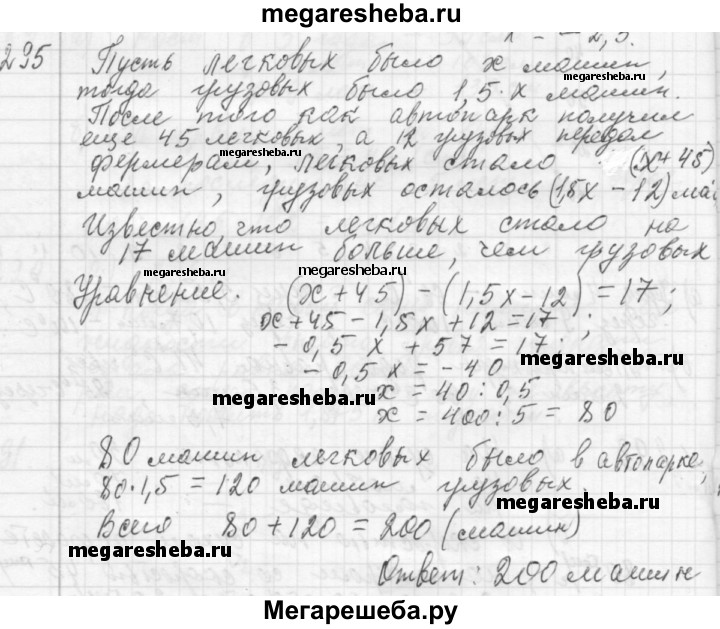 megaresheba.ru
295 Пусть легковых было x машин,
megaresheba.ru
тогда грузовых было 1,5·x машин.
После того как автопарк получил
еще 45 легковых, а 12 грузовых передал
megaresheba.ru
фермерам, легковых стало (x+45)
megaresheba.ru
машин, грузовых осталось (1,5x – 12) ма
Известно, что легковых стало на
17 машин больше, чем грузовых
megaresheba.ru megaresheba.ru
Уравнение. (x+45) – (1,5x – 12) = 17;
x+45 – 1,5x + 12 = 17;
– 0,5x + 57 = 17;
megaresheba.ru
– 0,5x = – 40
megaresheba.ru
x = 40 : 0,5
x = 400 : 5 = 80
80 машин легковых было в автопарке,
megaresheba.ru
80·1,5 = 120 машин грузовых.
Всего 80 + 120 = 200 (машин)
megaresheba.ru
Ответ: 200 машин
Мегарешеба.ру